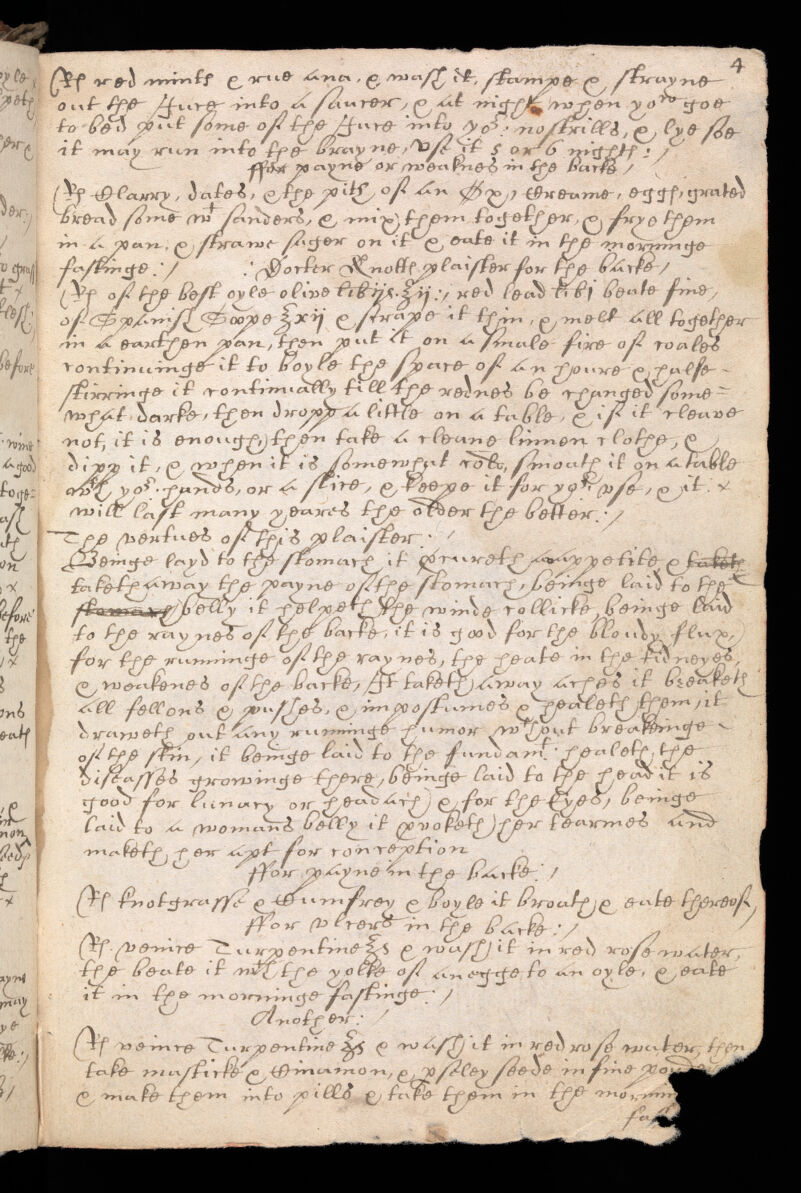 4
Rx red mints & rue ana, & wash it, stampe & strayne
out the Juce into a saucer, & at night when yow goe
to bed put some of the Juce into yor: nostrills, & lye soe
it may run into the brayne, vse it 5 or 6 nights:/
ffor payne or weaknes in the backe/
Rx Clarry, dates, & the pith of an Ox, Creame, eggs, grated
bread some wt sanders, & mix them together, & frye them
in a pan, & strawe suger on it & eate it in the morninge
fastinge:/ : Docter Knotts plaister for the backe/
Rx of the best oyle olive lib ijs ℥ij:, red lead lib j beate fine,
of Spanish Sope ℥xij & scrape it thin, & melt all together
in a earthen pan, then put it on a smale fire of coales
continuinge it to boyle the space of an houre & halfe -
stirringe it continually till the rednes be changed some=
what darke, then dropp a little on a table, & if it cleave
not, it is enough, then take a cleane linnen clothe, &
dipp it, & when it is somewhat cold, smoath it on a table
wth yor: hands, or a slice, & keepe it for yor: vse, & it
will last many yeares the older the better:/
The vertues of this plaister:/
Beinge layd to the stomach it pcureth appetite & taketh
taketh away the payne of the stomach, beinge laid to the
stomach belly it helpeth the winde collicke, beinge laid
to the raynes of the backe, it is good for the bloudy flux,
for the runninge of the raynes, the heate in the kidneyes,
& weakenes of the backe, It taketh away aches it breaketh
all fellons & pushes, & impostumes & healeth them, it
draweth out any runninge humor wthout breakinge -
of the skin, it beinge laid to the fundamt: healeth the
diseasses growinge there, beinge laid to the head it is
good for lunacy or headach & for the Eyes, beinge
laid to a womans belly it pvoketh her tearmes and
maketh her apt for conception
ffor payne in the backe:/
Rx knotgrasse & Cumfrey & boyle it broath & eate thereof/
ffor vlcers in the backe:/
Rx venice Turpentine ℥s & wash it in red rose water,
the beate it wth the yolke of an egge to an oyle, & eate
it in the morninge fastinge:/
Another:/
Rx veince Turpentine ℥s & wash it in red rose water, then
take masticke & Cinamon, & psley seede in fine
& make them into pills & take them in the